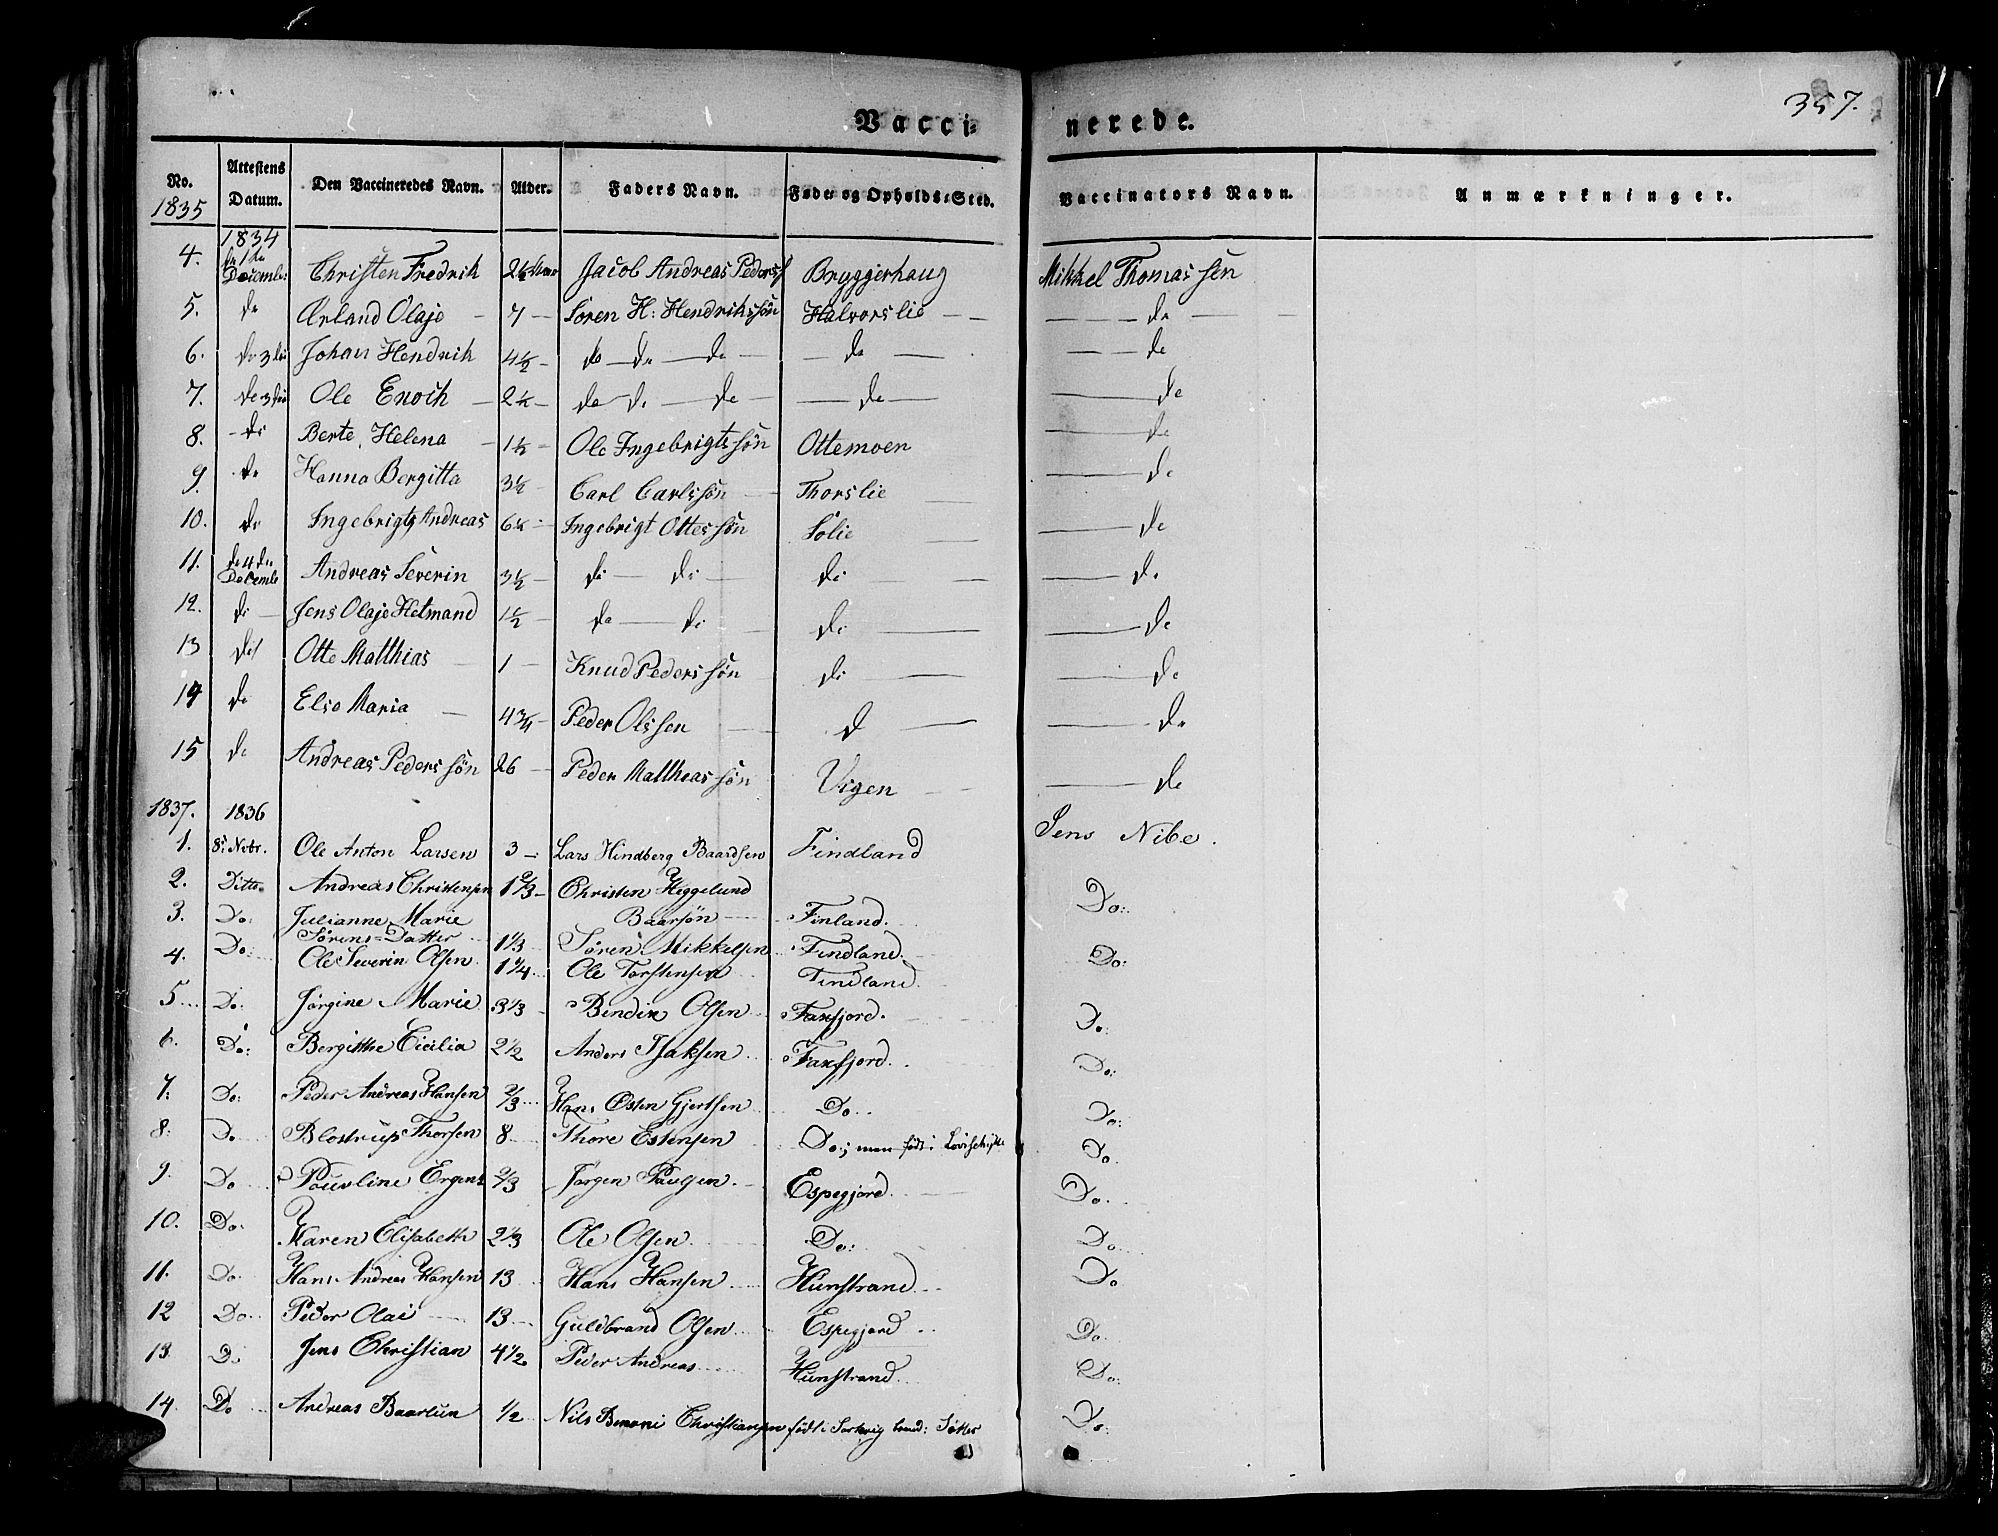 Vaccinerede.
357.
No. Attestens Datum. Den Vaccineredes Navn. Alder. Faders Navn. Føde- og Opholds-Sted. Vaccinators Navn. Anmærkninger.
1835 1834
4. December Christen Fredrik Jacob Andreas Peders Bryggerhaug Mikkel Thomassen
5. do Ærland Olaje — 7 — Søren H: Hendrikssøn Halvorslie — — do —
6. do Johan Hendrik 4½ — do — do — do — do — — do
7. do Ole Enoch — 2½ — do do — do — do — — do
8. — do Berte Helena — 1½ — Ole Ingebrigtssøn Ottemoen — do
9. do Hanna Bergitta 3½ — Carl Carlssøn — Thorslie — — do
10. do Ingebrigt Andreas 6½ — Ingebrigt Ottessøn Sølie — — do
11. do 4de December Andreas Severin 3½ — do — do — do — — do
12. do — Jens Olaje Hetmand 1½ — do — do — do — — do
13 do Otte Matthias — 1 — Knud Peders søn do — — do
14 do Elso Maria — 4¾ — Peder Olssen — d — — do
15 do Andreas Pederssøn 26 — Peder Mattheassøn Vigen — — do
1837. 1836
1. 8. Nvbr. Ole Anton Larsen 3 — Lars Hindberg Baardsen Findland Jens Nibe.
2. Ditto Andreas Christensen 1⅔ — Christen Heggelund Baarsøn — Finland. Do:
3. Do: Julianne Marie Sørens=Datter 1⅓ Søren Mikkelsen Findland. Do:
4. Do: Ole Severin Olsen 1¼ Ole Torstensen Findland.
5. Do: Jørgine Marie 3⅓ — Bendix Olsen Faxfjord. Do:
6. Do: Bergitthe Cicilia 2½ Anders Isaksen Faxfjord. Do:
7. Do: Peder Andreas Hansen ⅔ Hans Østen Gjertsen Do. Do:
8. Do Blostrup Thorsen 8 Thore Estensen Do; men født i Do.
9. Do Pouvline Ergens ⅔ Jørgen Povesen. Espegjord. Do.
10. Do. Karen Elisabeth 2⅓ Ole Olsen Do: Do.
11. Do. Hans Andreas Hansen 13 Hans Hansen Hunstrand. Do
12 Do. Peder Olai 13 Guldbrand Olsen Espegjord Do.
13 Do Jens Christian 4½ Peder Andreas Hunstrand. Do:
14. Do Andreas Baarlun ½ Nils Benoni Christiansen født i Do: